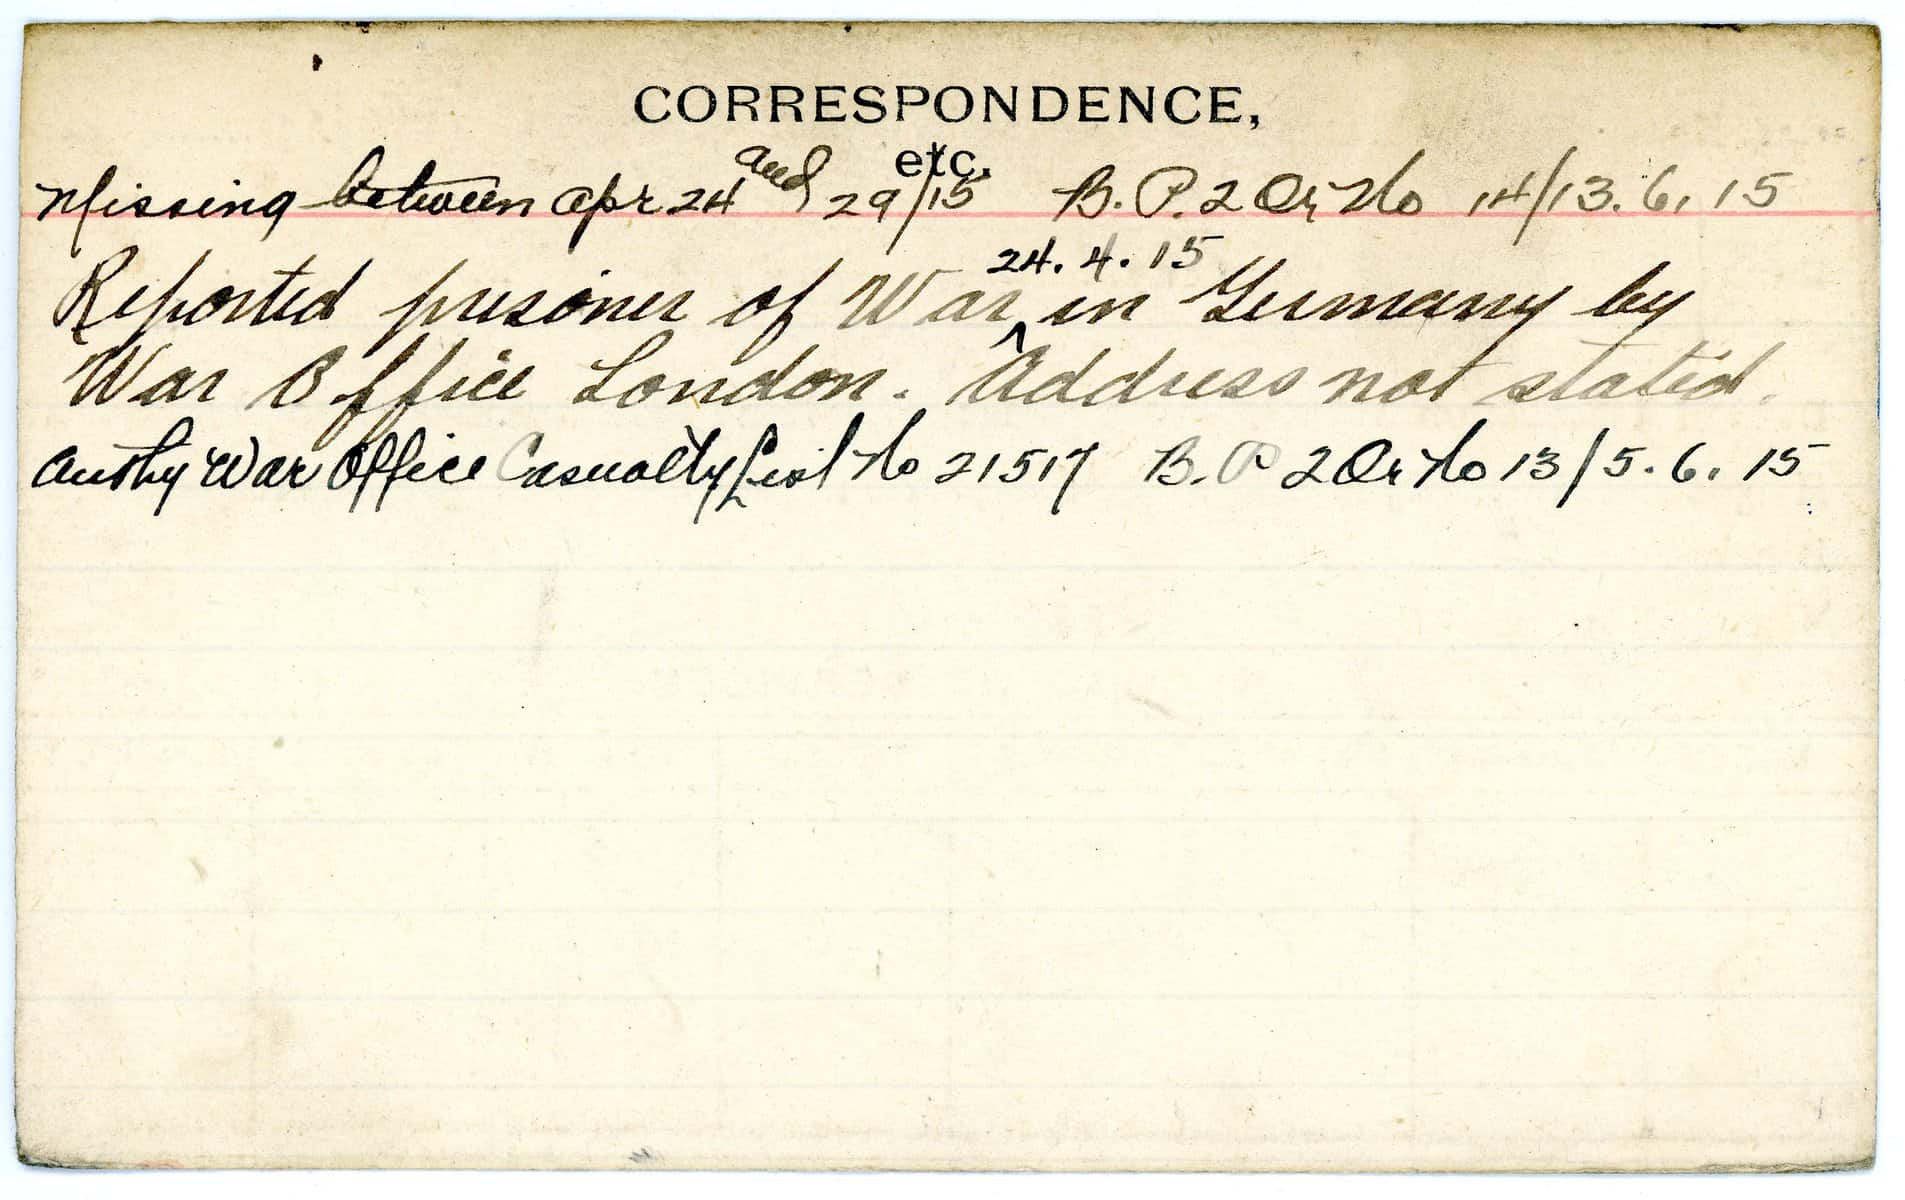 CORRESPONDENCE,
etc.
Missing between Apr 24 and 29/15 B.P. 2 Or No 14/13.6.15
24.4.15
Reported prisoner of War ^ in Germany by
War Office London. Address not stated.
Authy War Office Casualty List No 21517 B.P 2 Or No 13/5.6.15